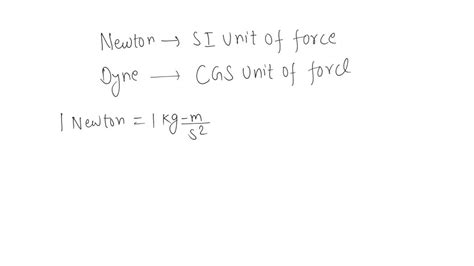 Newton → SI unit of force
Dyne → CGS unit of force
1 Newton = 1 kg-m/s²